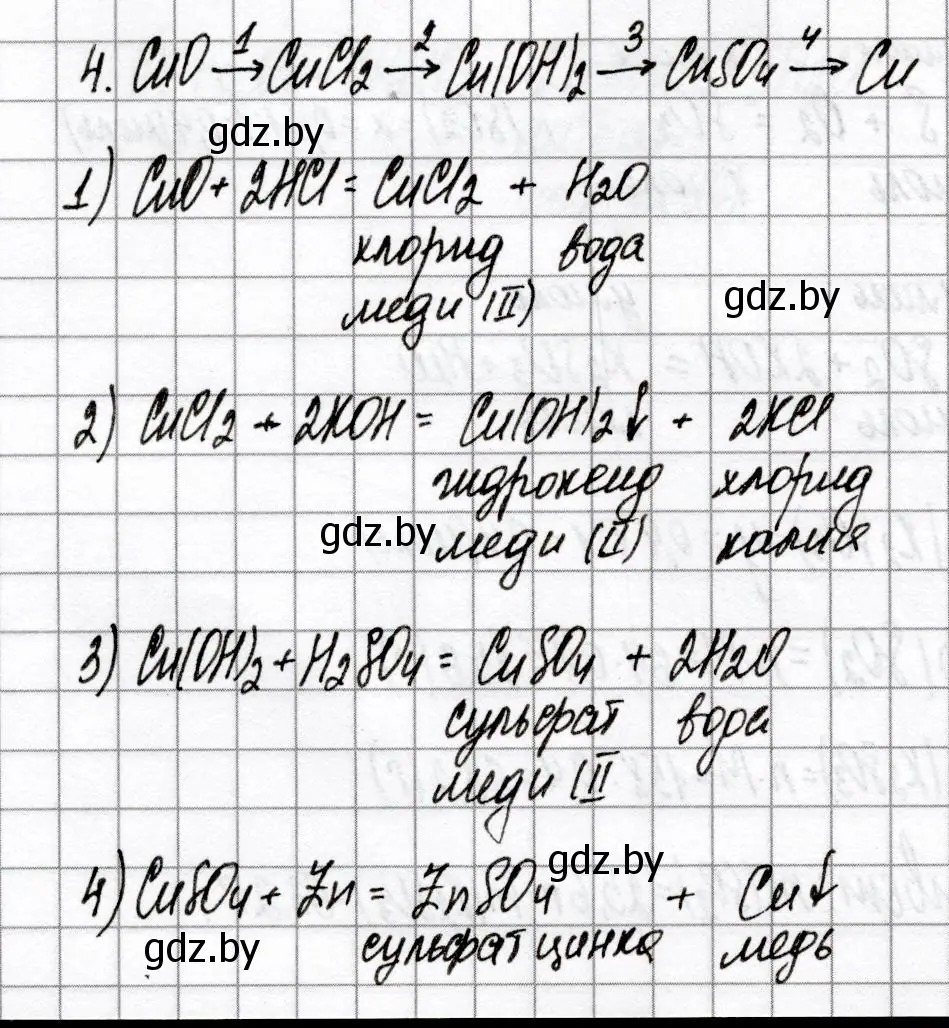 4. CuO →1 CuCl₂ →2 Cu(OH)₂ →3 CuSO₄ →4 Cu
gdz.by
1) CuO + 2HCl = CuCl₂ + H₂O
хлорид вода
меди (II)
gdz.by
2) CuCl₂ + 2KOH = Cu(OH)₂↓ + 2KCl
гидроксид хлорид
gdz.by
меди (II) калия
3) Cu(OH)₂ + H₂SO₄ = CuSO₄ + 2H₂O
сульфат вода
меди (II
gdz.by
4) CuSO₄ + Zn = ZnSO₄ + Cu↓
gdz.by
сульфат цинка медь